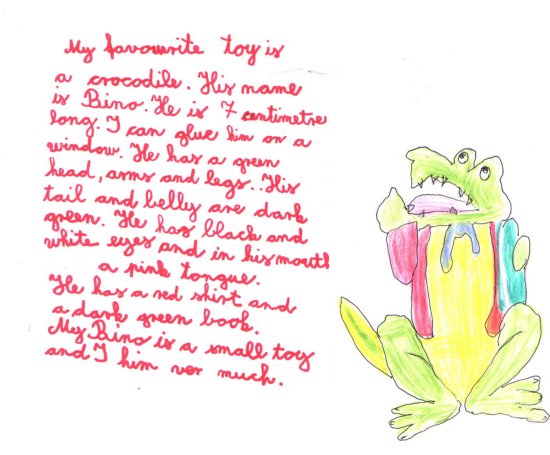 My favourite toy is
a crocodile. His name
is Bino. He is 7 centimetre
long. I can glue him on a
window. He has a green
head, arms and legs.. His
tail and belly are dark
green. He has black and
white eyes and in his mouth
a pink tongue.
He has a red shirt and
a dark green book.
My Bino is a small toy
and I him ver much.